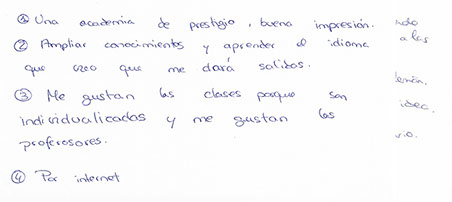 ① Una academia de prestigio, buena impresión.
② Ampliar conocimientos y aprender el idioma
que creo que me dará salidas.
③ Me gustan las clases porque son
individualicadas y me gustan los
proferosores.
④ Por internet
ado
a las
idec.
vio.